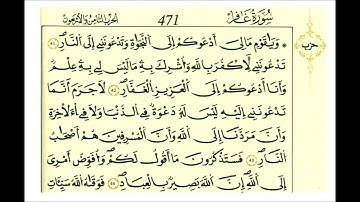 سُورَةُ غَافِر 471 الحزب الثامن والأربعون
حزب
۞ وَيَٰقَوْمِ مَا لِيَ أَدْعُوكُمْ إِلَى ٱلنَّجَوٰةِ وَتَدْعُونَنِي إِلَى ٱلنَّارِ
تَدْعُونَنِي لِأَكْفُرَ بِٱللَّهِ وَأُشْرِكَ بِهِ مَا لَيْسَ لِي بِهِ عِلْمٌ
وَأَنَا أَدْعُوكُمْ إِلَى ٱلْعَزِيزِ ٱلْغَفَّٰرِ لَا جَرَمَ أَنَّمَا
تَدْعُونَنِي إِلَيْهِ لَيْسَ لَهُ دَعْوَةٌ فِي ٱلدُّنْيَا وَلَا فِي ٱلْأَخِرَةِ
وَأَنَّ مَرَدَّنَا إِلَى ٱللَّهِ وَأَنَّ ٱلْمُسْرِفِينَ هُمْ أَصْحَٰبُ
ٱلنَّارِ فَسَتَذْكُرُونَ مَا أَقُولُ لَكُمْ وَأُفَوِّضُ أَمْرِي
إِلَى ٱللَّهِ إِنَّ ٱللَّهَ بَصِيرٌ بِٱلْعِبَادِ فَوَقَىٰهُ ٱللَّهُ سَيِّئَاتِ